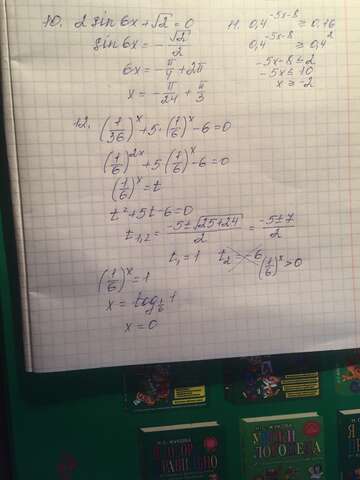 10. 2 sin 6x + √2 = 0
sin 6x = -√2/2
6x = -π/4 + 2π
x = -π/24 + π/3
11. 0,4^(-5x-8) ≥ 0,16
0,4^(-5x-8) ≥ 0,4²
-5x-8 ≤ 2
-5x ≤ 10
x ≥ -2
12. (1/36)^x + 5·(1/6)^x - 6 = 0
(1/6)^2x + 5(1/6)^x - 6 = 0
(1/6)^x = t
t² + 5t - 6 = 0
t1,2 = (-5±√25+24)/2 = (-5±7)/2
t1 = 1 t2 = -6 (1/6)^x > 0
(1/6)^x = 1
x = log 1/6 1
x = 0
Н.С. ЖУКОВА
УРОКИ
ЛОГОПЕДА
Н.С. ЖУКОВА